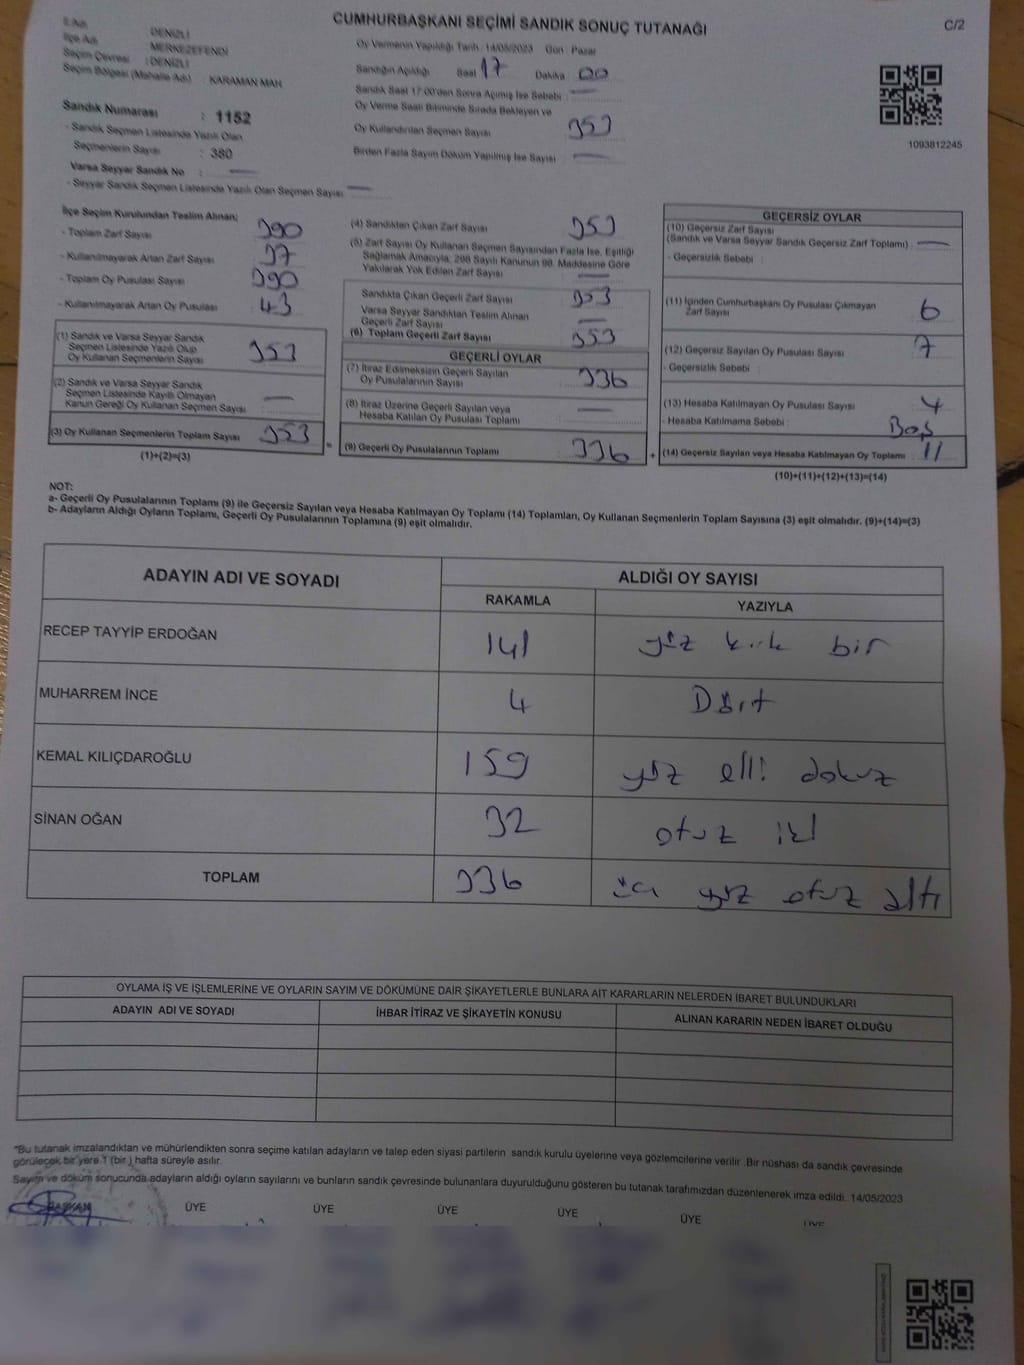 CUMHURBAŞKANI SEÇİMİ SANDIK SONUÇ TUTANAĞI
C/2
İli Adı : DENİZLİ
İlçe Adı : MERKEZEFENDİ
Seçim Çevresi : DENİZLİ
Seçim Bölgesi (Mahalle Adı) : KARAMAN MAH
Sandık Numarası : 1152
- Sandık Seçmen Listesinde Yazılı Olan
Seçmenlerin Sayısı : 380
Varsa Seyyar Sandık No : —
- Seyyar Sandık Seçmen Listesinde Yazılı Olan Seçmen Sayısı : —
Oy Vermenin Yapıldığı Tarih : 14/05/2023 Gün : Pazar
Sandığın Açıldığı Saat 17 Dakika 00
Sandık Saat 17:00'den Sonra Açılmış İse Sebebi : —
Oy Verme Saati Bitiminde Sırada Bekleyen ve
Oy Kullandırılan Seçmen Sayısı 353
Birden Fazla Sayım Döküm Yapılmış İse Sayısı : —
1093812245
İlçe Seçim Kurulundan Teslim Alınan;
- Toplam Zarf Sayısı 390
- Kullanılmayarak Artan Zarf Sayısı 37
- Toplam Oy Pusulası Sayısı 390
- Kullanılmayarak Artan Oy Pusulası 43
(1) Sandık ve Varsa Seyyar Sandık
Seçmen Listesinde Yazılı Olup
Oy Kullanan Seçmenlerin Sayısı 353
(2) Sandık ve Varsa Seyyar Sandık
Seçmen Listesinde Kayıtlı Olmayan
Kanun Gereği Oy Kullanan Seçmen Sayısı : —
(3) Oy Kullanan Seçmenlerin Toplam Sayısı 353
(1)+(2)=(3)
(4) Sandıktan Çıkan Zarf Sayısı 353
(5) Zarf Sayısı Oy Kullanan Seçmen Sayısından Fazla İse, Eşitliği
Sağlamak Amacıyla, 298 Sayılı Kanunun 98. Maddesine Göre
Yakılarak Yok Edilen Zarf Sayısı —
Sandıkta Çıkan Geçerli Zarf Sayısı 353
Varsa Seyyar Sandıktan Teslim Alınan
Geçerli Zarf Sayısı —
(6) Toplam Geçerli Zarf Sayısı 353
GEÇERLİ OYLAR
(7) İtiraz Edilmeksizin Geçerli Sayılan
Oy Pusulalarının Sayısı 336
(8) İtiraz Üzerine Geçerli Sayılan veya
Hesaba Katılan Oy Pusulası Toplamı —
= (9) Geçerli Oy Pusulalarının Toplamı 336 +
GEÇERSİZ OYLAR
(10) Geçersiz Zarf Sayısı
(Sandık ve Varsa Seyyar Sandık Geçersiz Zarf Toplamı) : —
- Geçersizlik Sebebi :
(11) İçinden Cumhurbaşkanı Oy Pusulası Çıkmayan
Zarf Sayısı 6
(12) Geçersiz Sayılan Oy Pusulası Sayısı 7
- Geçersizlik Sebebi :
(13) Hesaba Katılmayan Oy Pusulası Sayısı 4
- Hesaba Katılmama Sebebi : Boş
(14) Geçersiz Sayılan veya Hesaba Katılmayan Oy Toplamı : 11
(10)+(11)+(12)+(13)=(14)
NOT:
a- Geçerli Oy Pusulalarının Toplamı (9) ile Geçersiz Sayılan veya Hesaba Katılmayan Oy Toplamı (14) Toplamları, Oy Kullanan Seçmenlerin Toplam Sayısına (3) eşit olmalıdır. (9)+(14)=(3)
b- Adayların Aldığı Oyların Toplamı, Geçerli Oy Pusulalarının Toplamına (9) eşit olmalıdır.
ADAYIN ADI VE SOYADI ALDIĞI OY SAYISI
RAKAMLA YAZIYLA
RECEP TAYYİP ERDOĞAN 141 yüz kırk bir
MUHARREM İNCE 4 Dört
KEMAL KILIÇDAROĞLU 159 yüz elli dokuz
SİNAN OĞAN 32 otuz iki
TOPLAM 336 üç yüz otuz altı
OYLAMA İŞ VE İŞLEMLERİNE VE OYLARIN SAYIM VE DÖKÜMÜNE DAİR ŞİKAYETLERLE BUNLARA AİT KARARLARIN NELERDEN İBARET BULUNDUKLARI
ADAYIN ADI VE SOYADI İHBAR İTİRAZ VE ŞİKAYETİN KONUSU ALINAN KARARIN NEDEN İBARET OLDUĞU
"Bu tutanak imzalandıktan ve mühürlendikten sonra seçime katılan adayların ve talep eden siyasi partilerin sandık kurulu üyelerine veya gözlemcilerine verilir .Bir nüshası da sandık çevresinde
görülecek bir yere 1 (bir ) hafta süreyle asılır.
Sayım ve döküm sonucunda adayların aldığı oyların sayılarını ve bunların sandık çevresinde bulunanlara duyurulduğunu gösteren bu tutanak tarafımızdan düzenlenerek imza edildi. 14/05/2023
BAŞKAN ÜYE ÜYE ÜYE ÜYE ÜYE ÜYE